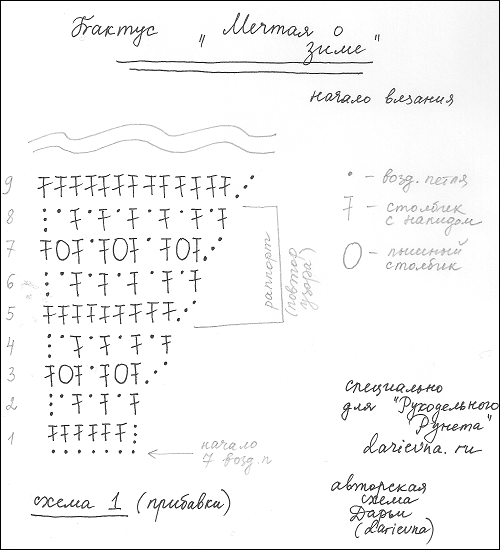 Бактус „Мечтая о
зиме"
начало вязания
9
8
7
6
5
4
3
2
1
• - возд. петля
- столбик
с накидом
- пышный
столбик
раппорт
(повтор
узора)
начало
7 возд. п
специально
для "Рукодельного
Рунета"
darievna.ru
схема 1 (прибавки)
авторская
схема
Дарьи
(darievna)